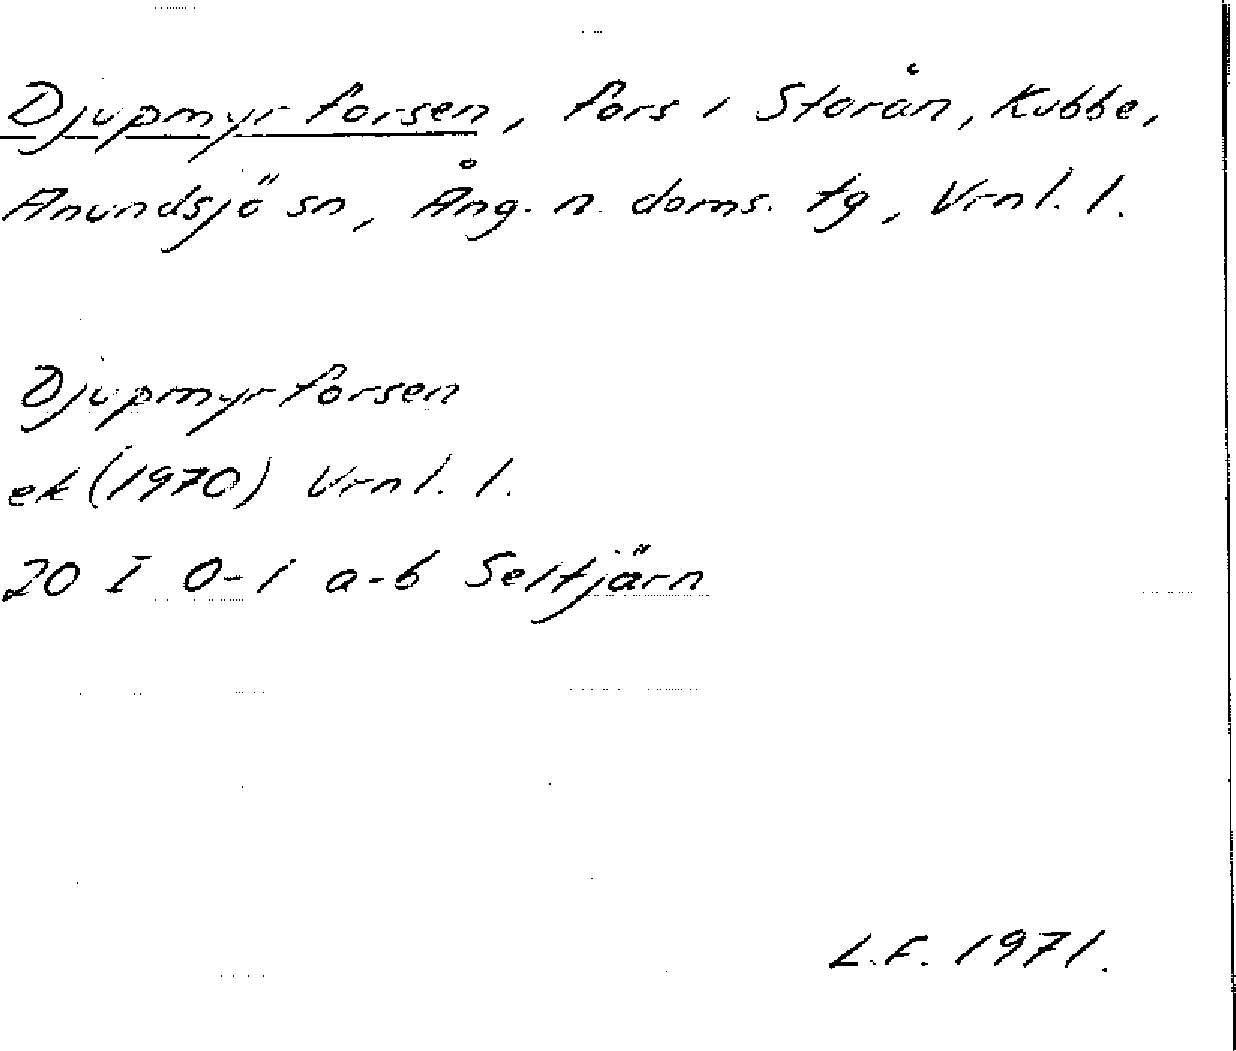 Djupmyrforsen, fors i Storån, Kubbe,
Anundsjö sn, Ång. n. doms. tg, Vrnl. l.
Djupmyrforsen
ek (1970) Vrnl. l.
20 I 0-1 a-b Seltjärn
L.F. 1971.